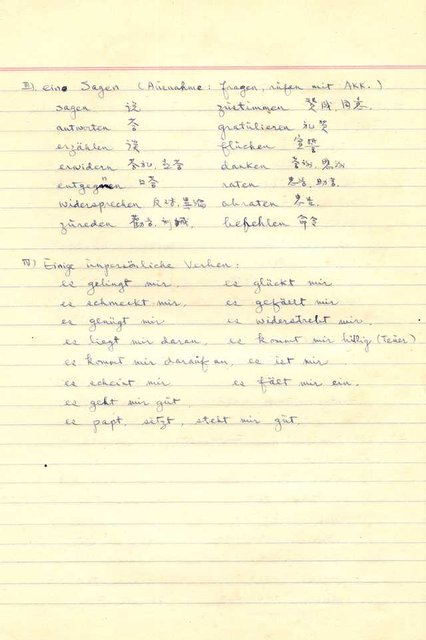 III) eine Sagen (Ausnahme: fragen, rufen mit Akk.)
sagen 说 zustimmen 贊成, 同意.
antworten 答 gratulieren 礼贊
erzählen fluchen 宣誓
erwidern 答礼, danken
entgegnen 口答 raten 忠告, 助言.
widersprechen 反对, 異論 abraten 忠告.
zureden 勸言, 訓誡 befehlen 命令
IV) Einige unpersönliche Verben:
es gelingt mir, es glückt mir
es schmeckt mir, es gefällt mir
es genügt mir es widerstrebt mir.
es liegt mir daran, es kommt mir billig (teuer)
es kommt mir darauf an, es ist mir
es scheint mir es fällt mir ein.
es geht mir gut
es paßt, sitzt, steht mir gut.